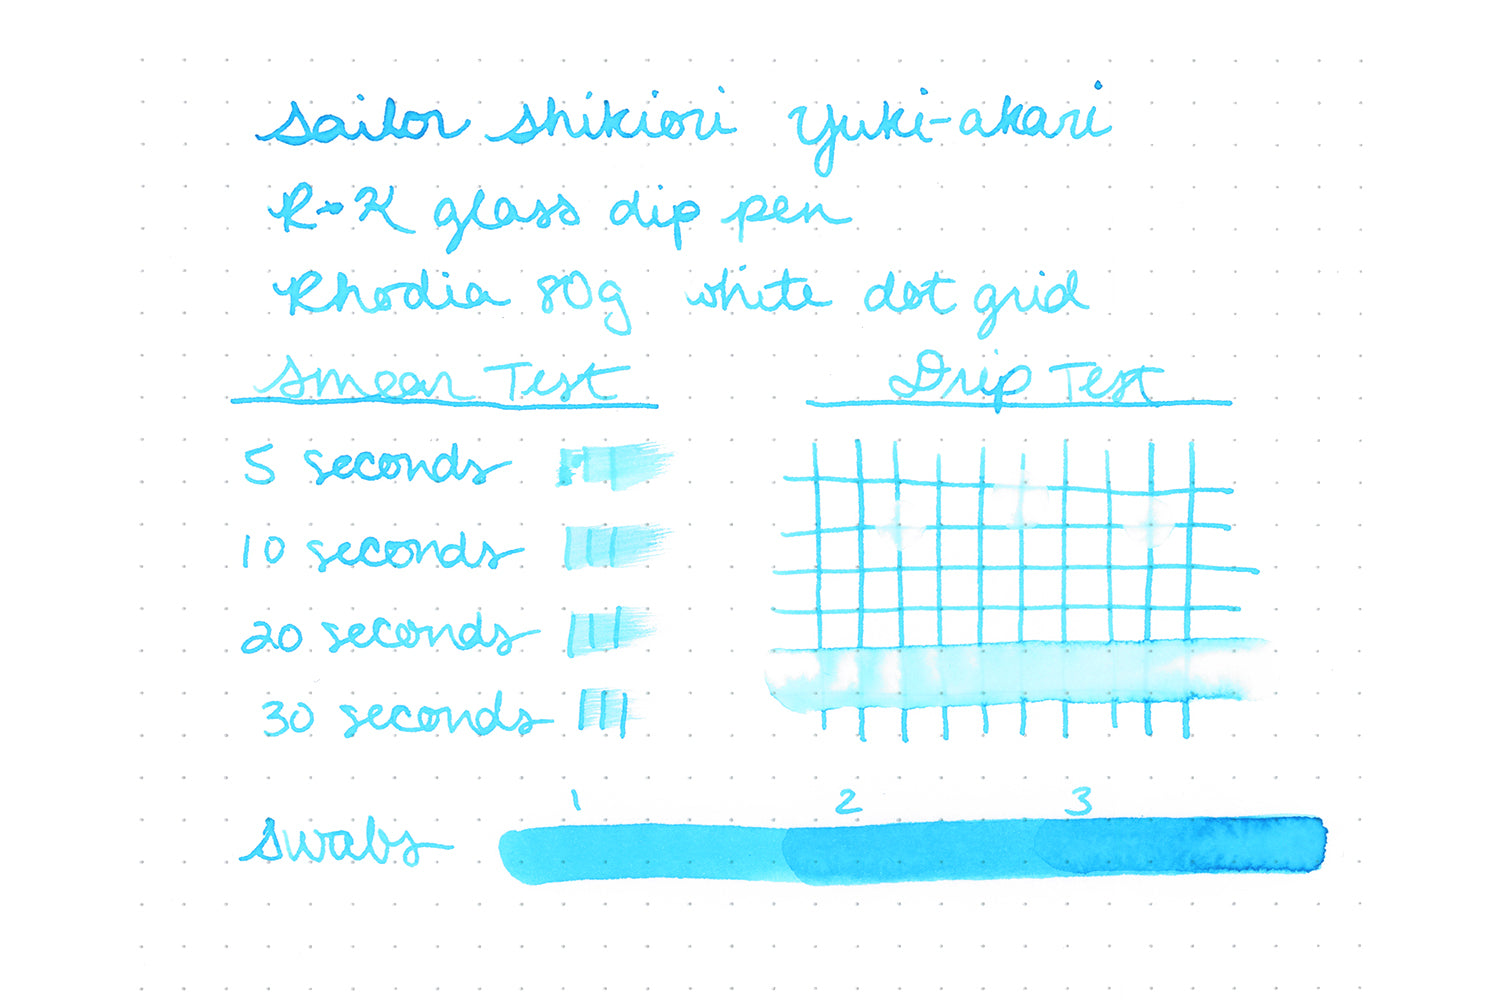 Sailor Shikiori Yuki-akari
R+K glass dip pen
Rhodia 80g white dot grid
Smear Test
Drip Test
5 seconds
10 seconds
20 seconds
30 seconds
1 2 3
Swabs